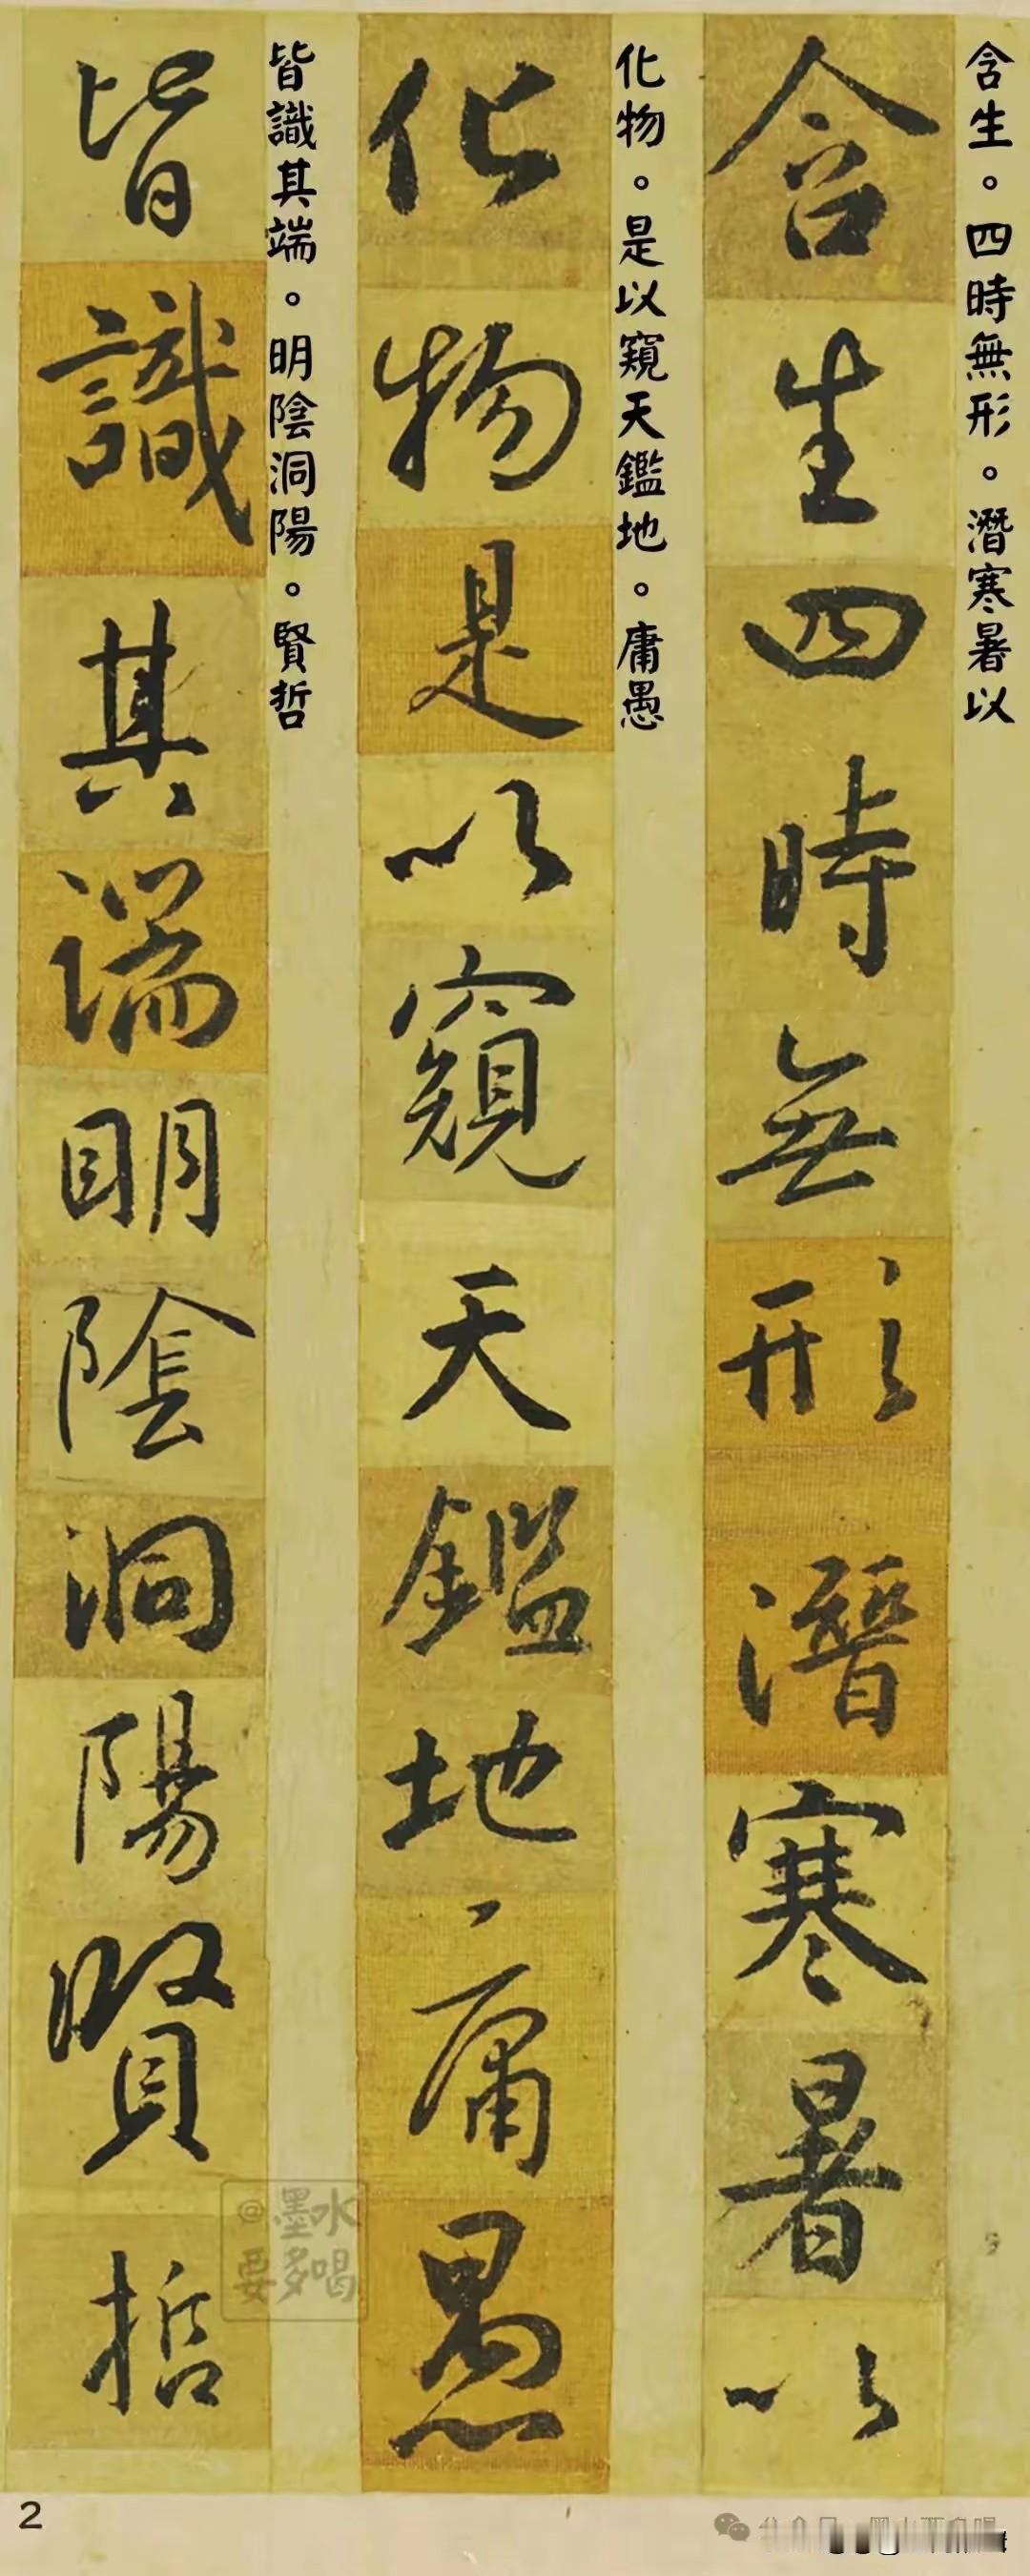 含生。四時無形。潛寒暑以
含生四時無形潛寒暑以
化物。是以窺天鑑地。庸愚
化物是以窺天鑑地庸愚
皆識其端。明陰洞陽。賢哲
皆識其端明陰洞陽賢哲
@墨水
要多喝
2